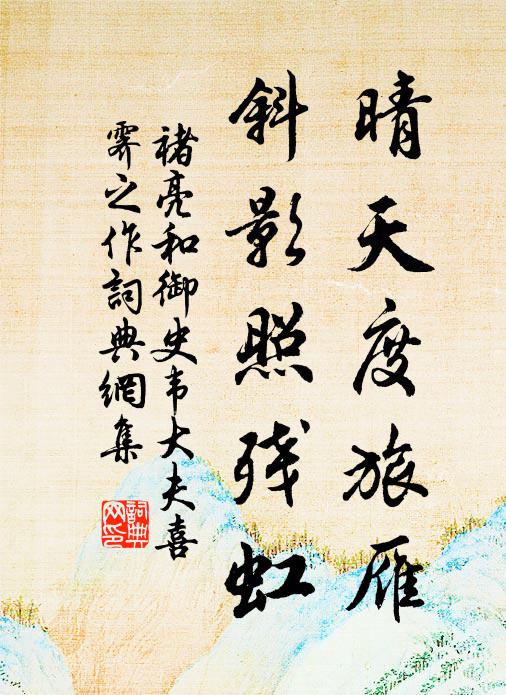 晴天度旅雁
斜影照残虹
褚亮和御史韦大夫喜
霁之作詞典網集
詞典
网印